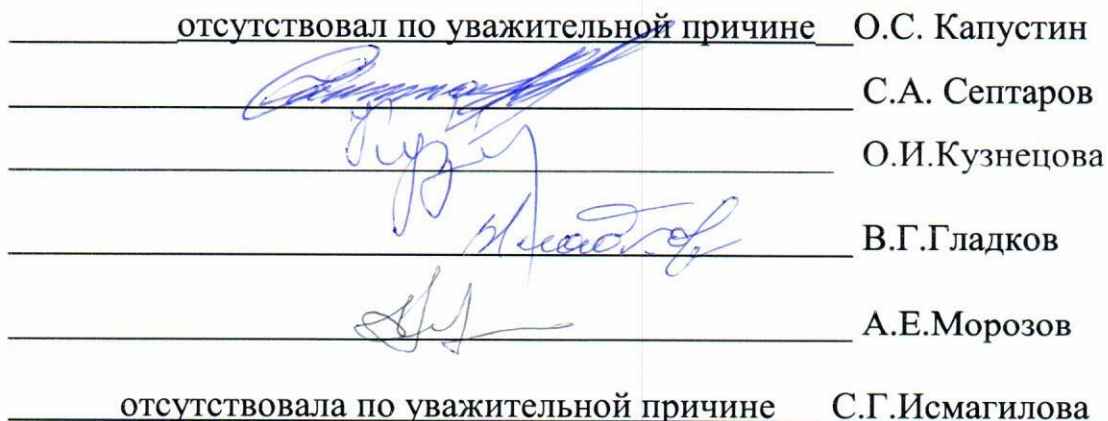 отсутствовал по уважительной причине О.С. Капустин
С.А. Септаров
О.И.Кузнецова
В.Г.Гладков
А.Е.Морозов
отсутствовала по уважительной причине С.Г.Исмагилова